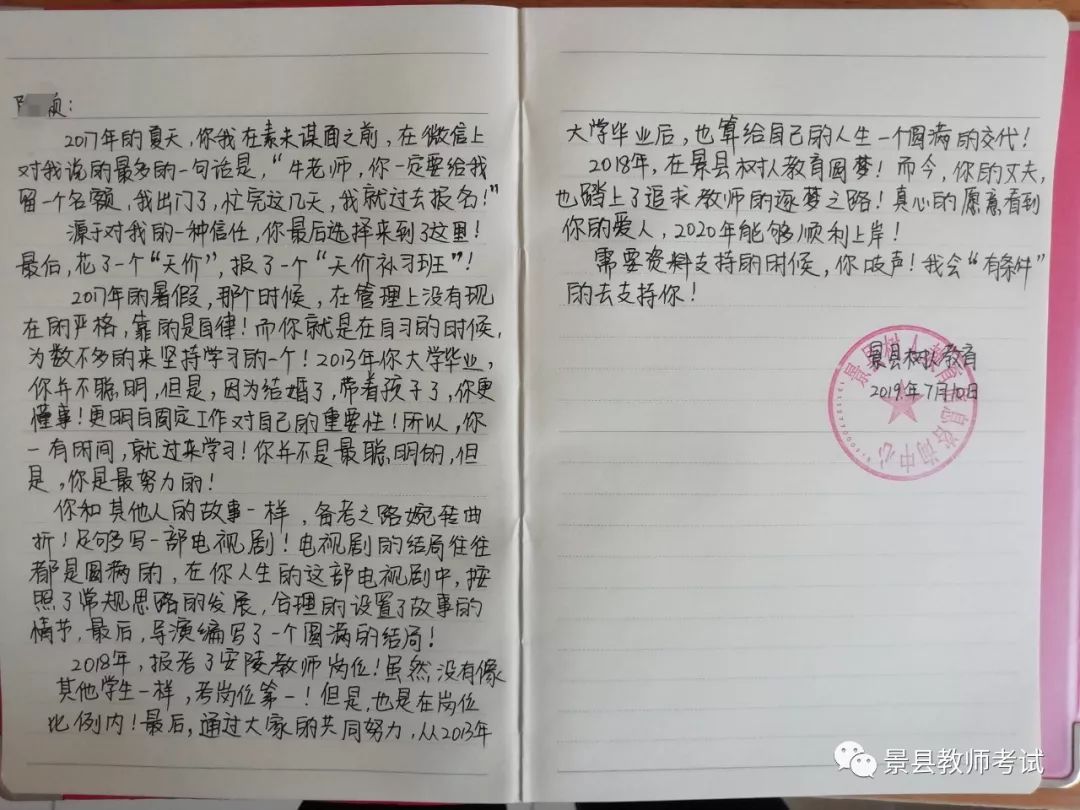 贞：
2017年的夏天，你我在素未谋面之前，在微信上
对我说的最多的一句话是，“牛老师，你一定要给我
留一个名额，我出门了，忙完这几天，我就过去报名！”
源于对我的一种信任，你最后选择来到了这里！
最后，花了一个“天价”，报了一个“天价补习班”！
2017年的暑假，那个时候，在管理上没有现
在的严格，靠的是自律！而你就是在自习的时候，
为数不多的来坚持学习的一个！2013年你大学毕业，
你并不聪明，但是，因为结婚了，带着孩子了，你更
懂事！更明白固定工作对自己的重要性！所以，你
一有时间，就过来学习！你并不是最聪明的，但
是，你是最努力的！
你和其他人的故事一样，备考之路婉转曲
折！足够写一部电视剧！电视剧的结局往往
都是圆满的，在你人生的这部电视剧中，按
照了常规思路的发展，合理的设置了故事的
情节，最后，导演编写了一个圆满的结局！
2018年，报考了安陵教师岗位！虽然没有像
其他学生一样，考岗位第一！但是，也是在岗位
比例内！最后，通过大家的共同努力，从2013年
大学毕业后，也算给自己的人生一个圆满的交代！
2018年，在景县树人教育圆梦！而今，你的丈夫，
也踏上了追求教师的逐梦之路！真心的愿意看到
你的爱人，2020年能够顺利上岸！
需要资料支持的时候，你吱声！我会“有条件”
的去支持你！
景县树人教育
2019年7月10日
景县树人教育信息咨询中心
景县教师考试